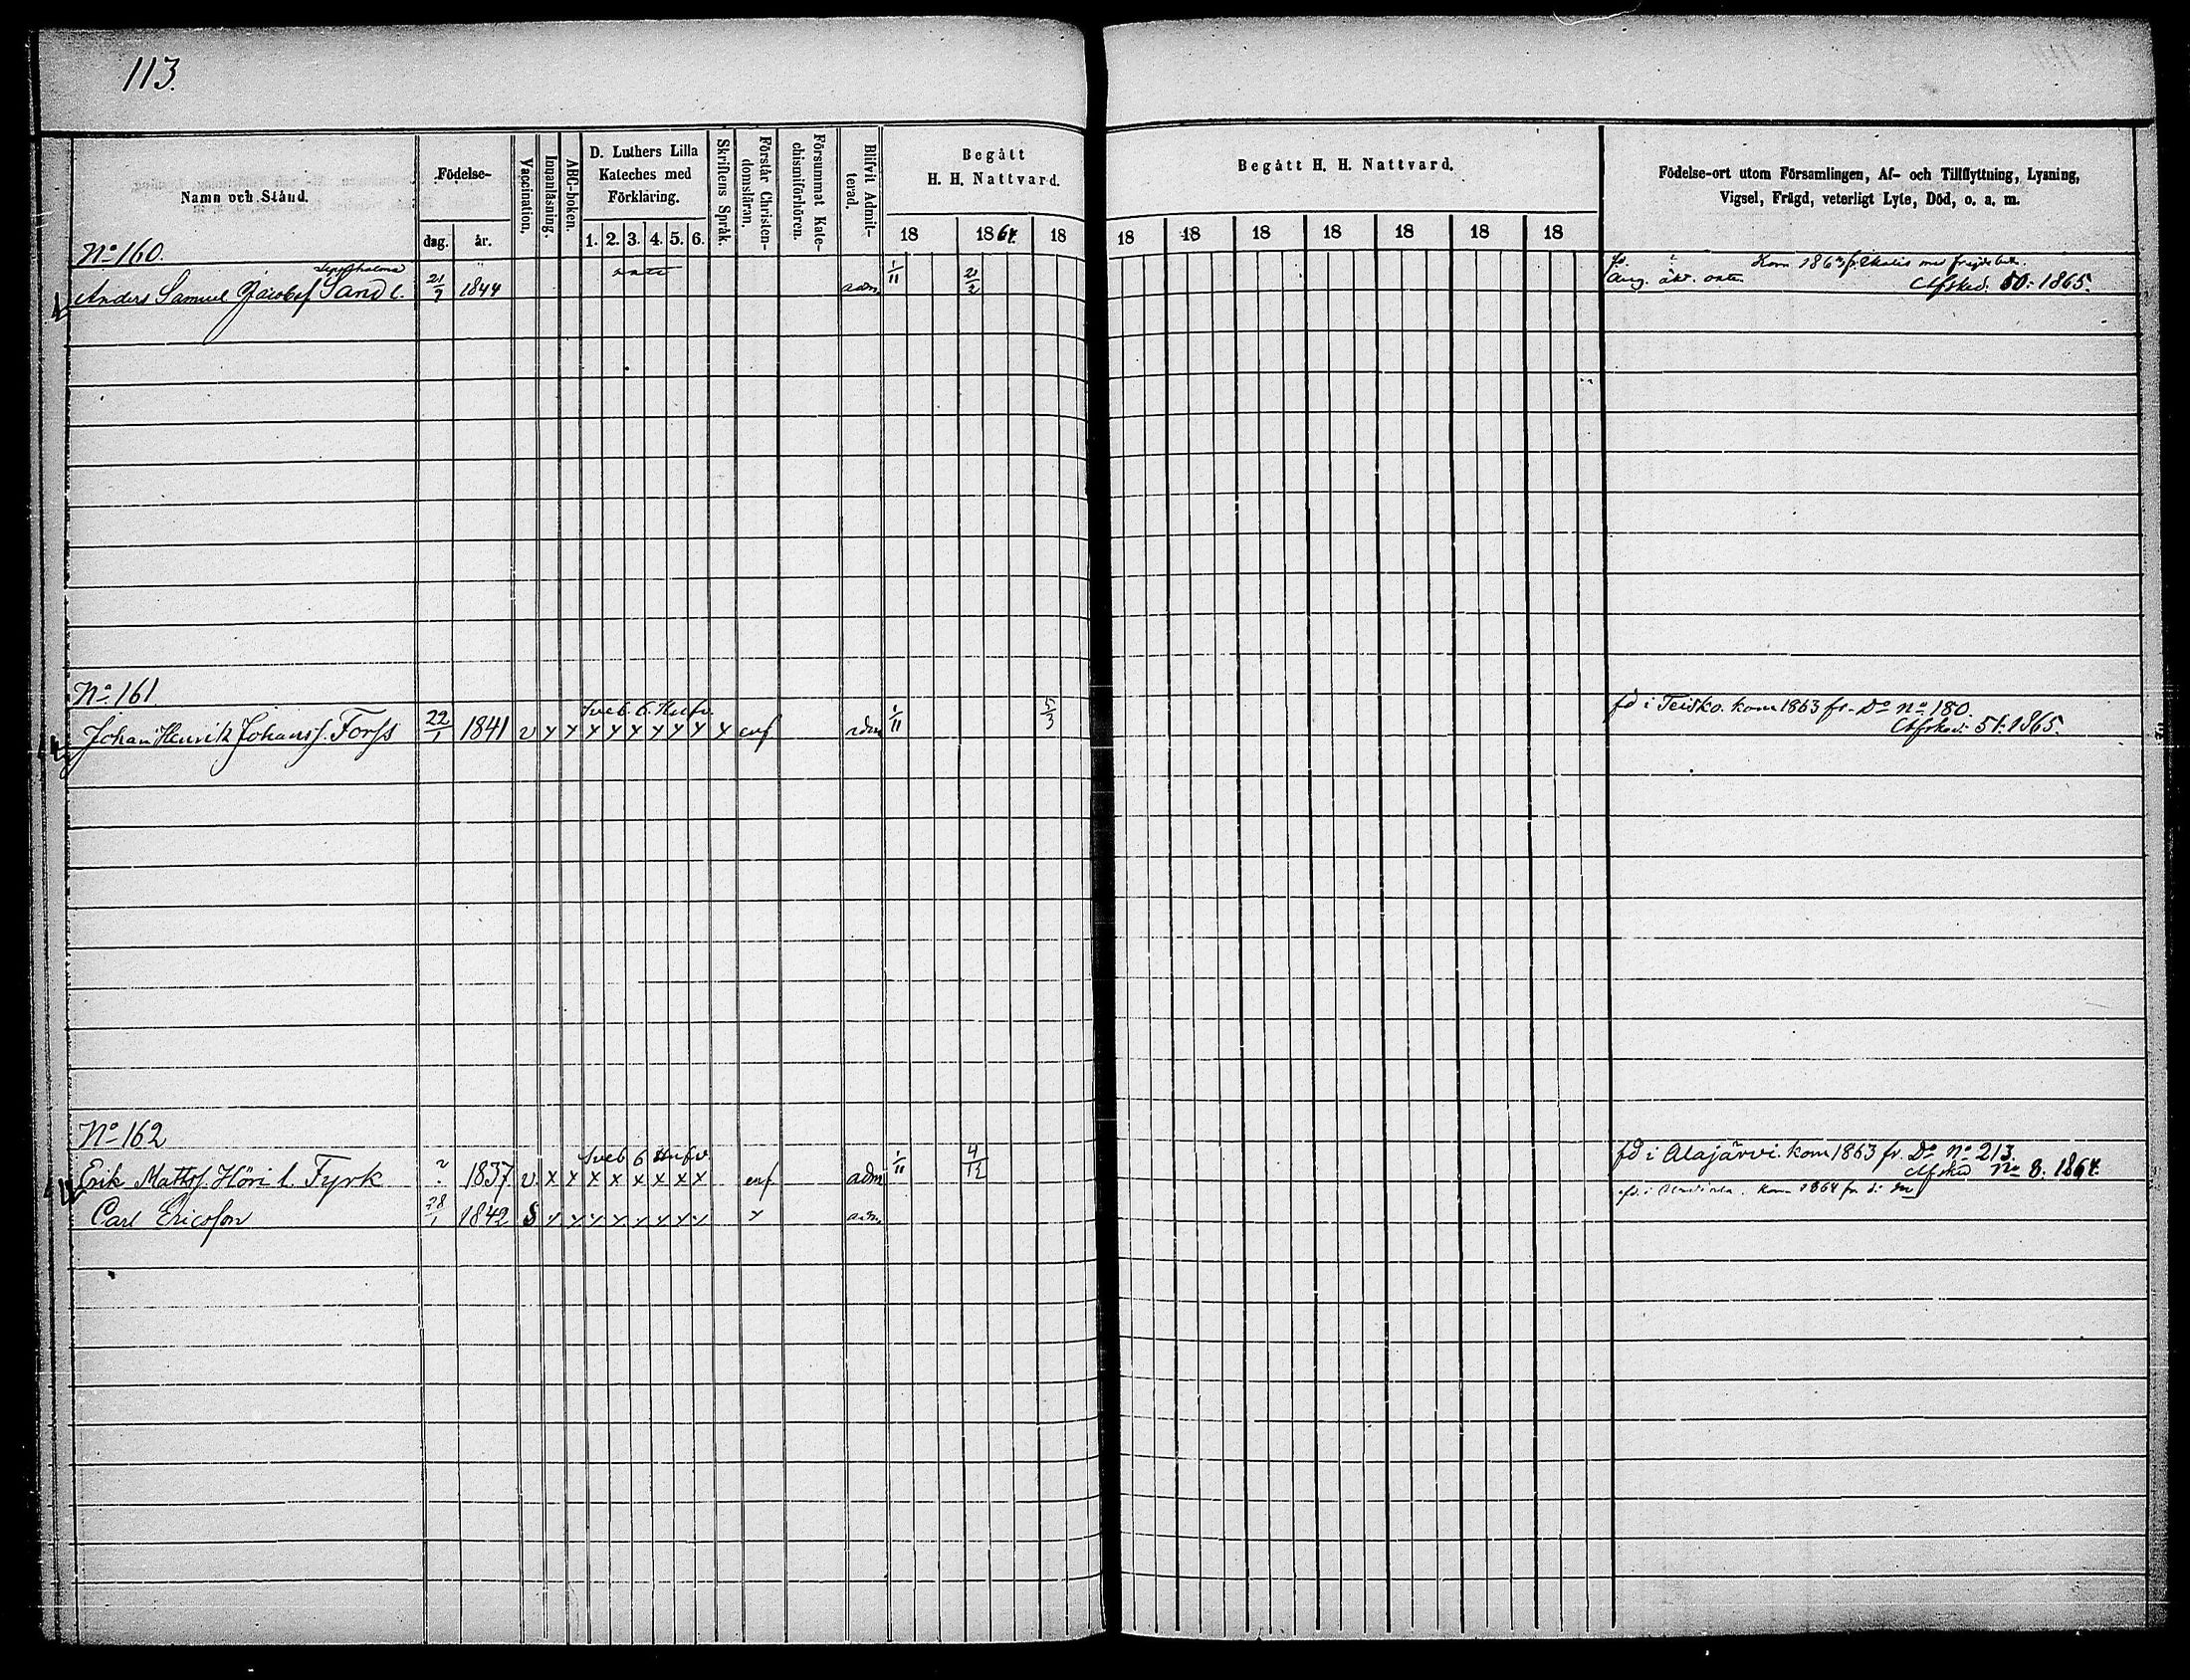 113.
Namn och Stånd.
Födelse-
dag. år.
Vaccination.
Innanläsning.
ABC-boken.
D. Luthers Lilla Kateches med Förklaring.
1. 2. 3. 4. 5. 6.
Skriftens Språk.
Förstår Christendomsläran.
Försummat Katechismiförhören.
Blifvit Admitterad.
Begått H. H. Nattvard.
18 1864. 18
Begått H. H. Nattvard.
18 18 18 18 18 18 18
Födelse-ort utom Församlingen, Af- och Tillflyttning, Lysning,
Vigsel, Frägd, veterligt Lyte, Död, o. a. m.
No 160.
Anders Samuel Jacobsf Sand l. 21/9 1844 adm 1/11 2/2 Kom 1863 fr.
Afsked. 50. 1865.
No 161.
Johan Henrik Johansf. Forss 22/1 1841 v x x x x x x x x x enf adm 1/11 5/3 fd i Teisko. kom 1863 fr. Do no 180.
Afsked. 51. 1865.
No 162
Erik Mattsf. Höri l. Fyrk ? 1837 v x x x x x x x x enf adm 1/11 4/12 fd i Alajärvi. kom 1863 fr. Do No 213.
Afsked No 8. 1864.
Carl Ericsson 28/1 1842 S x x x x x x x x x adm kom 1864 fr